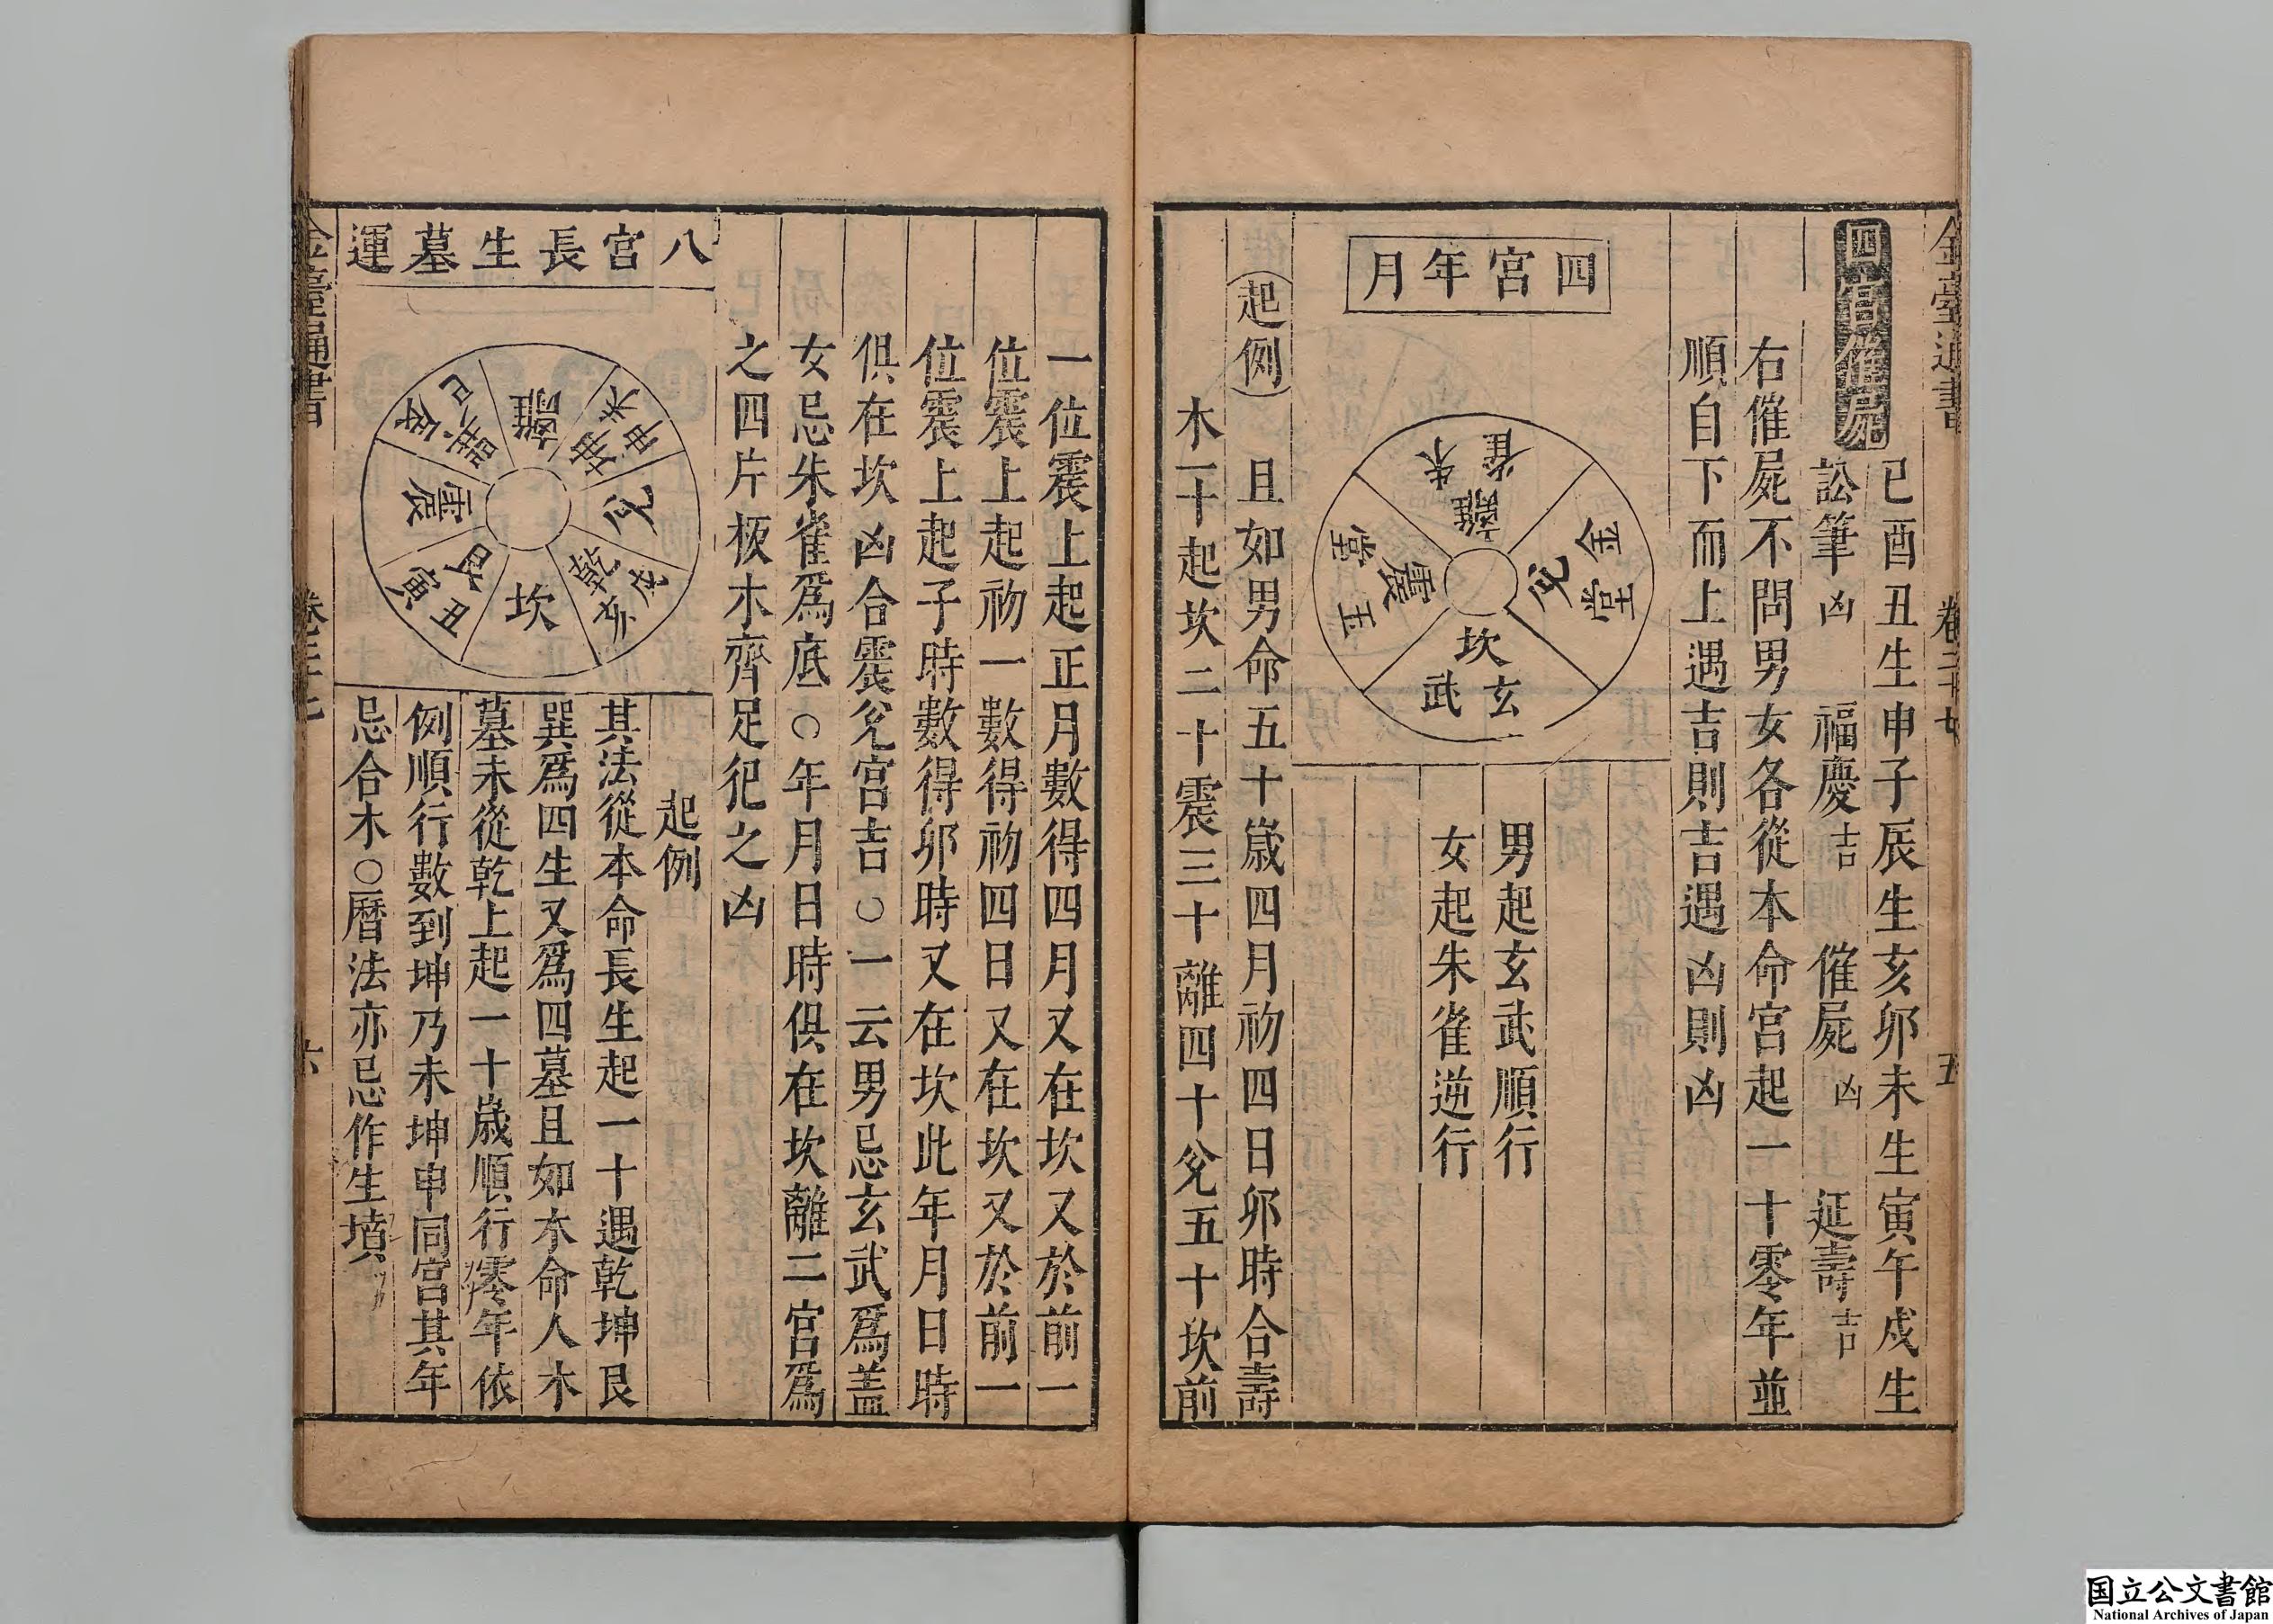 四宮催屍
巳酉丑生申子辰生亥卯未生寅午戌生
訟筆凶 福慶吉 催屍凶 延壽吉
右催屍不問男女各從本命宮起一十零年並
順自下而上遇吉則吉遇凶則凶
四宮年月
朱雀
離
金堂
兌
坎
玄武
震
玉堂
男起玄武順行
女起朱雀逆行
起例
且如男命五十歲四月初四日卯時合壽
木一十起坎二十震三十離四十兌五十坎前
一位震上起正月數得四月又在坎又於前一
位震上起初一數得初四日又在坎又於前一
位震上起子時數得卯時又在坎此年月日時
俱在坎凶合震兌宮吉○一云男忌玄武爲盖
女忌朱雀爲底○年月日時俱在坎離二宮爲
之四片板木齊足犯之凶
八宮長生墓運
離
未坤申
兌
戌乾亥
坎
丑艮寅
震
辰巽巳
起例
其法從本命長生起一十遇乾坤艮
巽爲四生又爲四墓且如木命人木
墓未從乾上起一十歲順行零年依
例順行數到坤乃未坤申同宮其年
忌合木○曆法亦忌作生墳
国立公文書館
National Archives of Japan